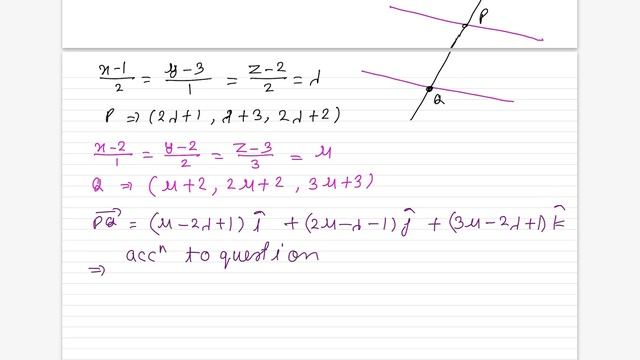 P
Q
x-1/2 = y-3/1 = z-2/2 = λ
P ⇒ (2λ+1, λ+3, 2λ+2)
x-2/1 = y-2/2 = z-3/3 = μ
Q ⇒ (μ+2, 2μ+2, 3μ+3)
PQ⃗ = (μ-2λ+1) î + (2μ-λ-1) ĵ + (3μ-2λ+1) k̂
⇒ accⁿ to question